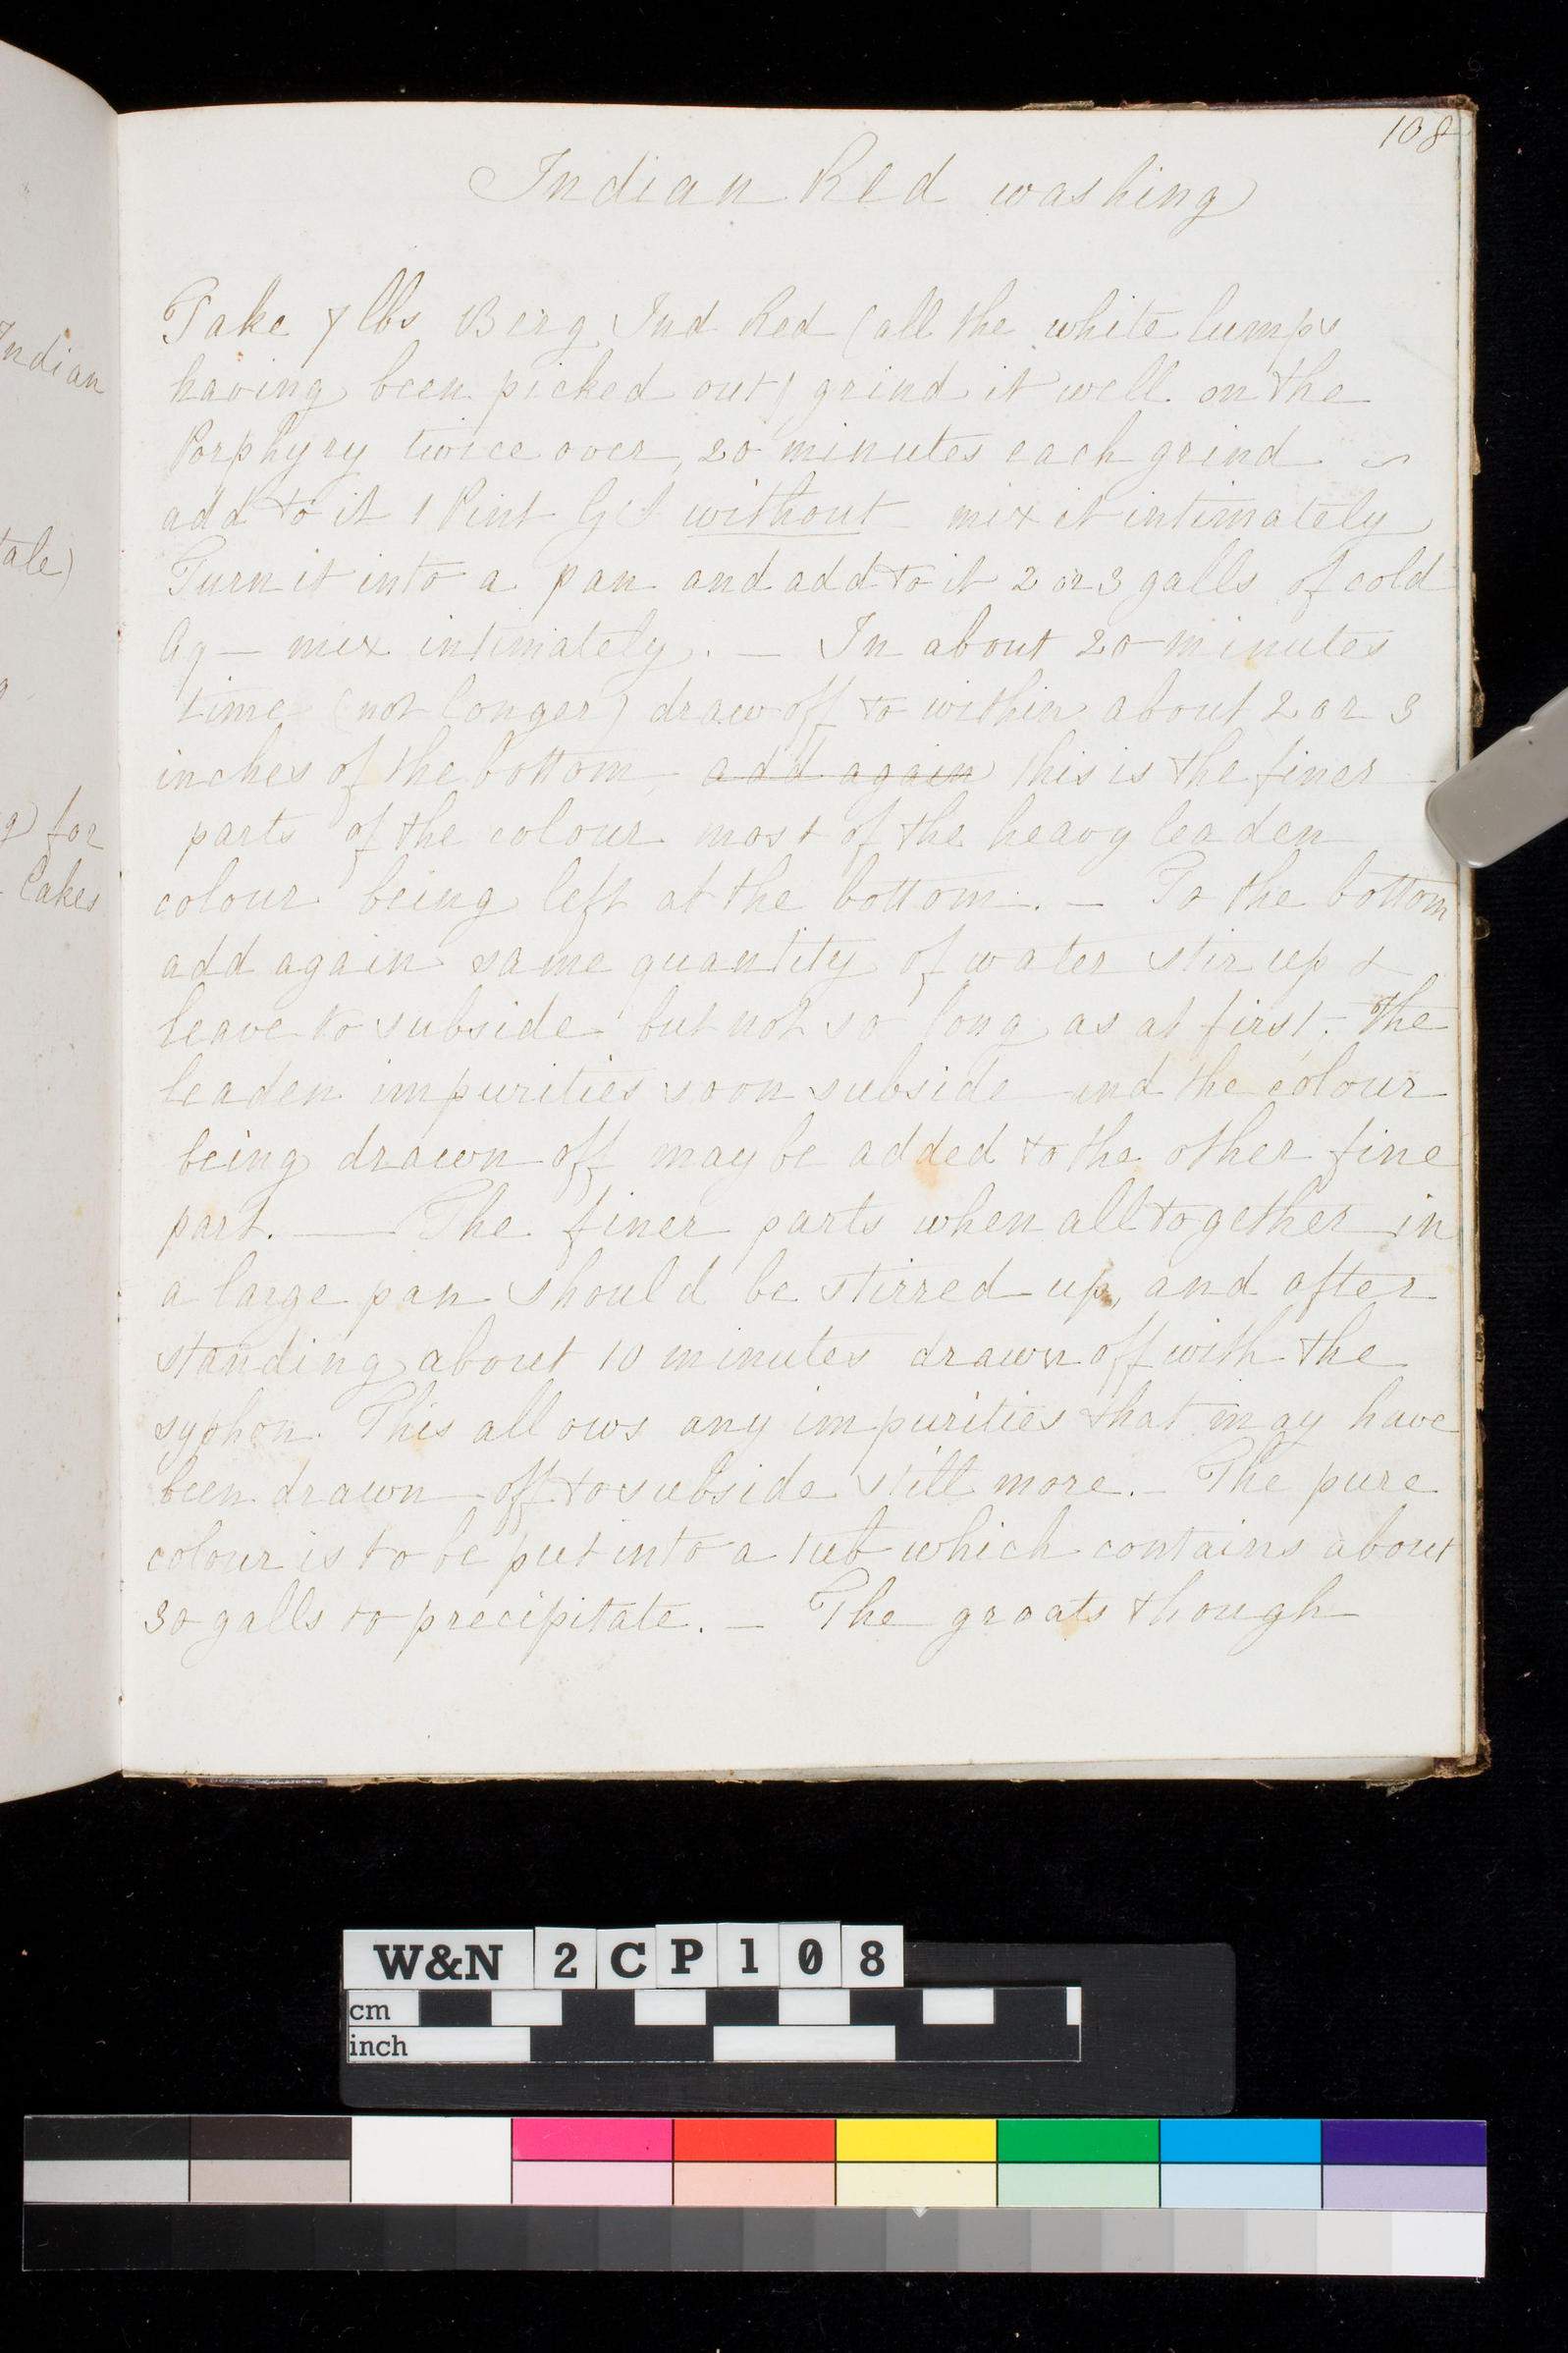 108
Indian Red washing
Take 7 lbs Berg Ind Red (all the white lumps
having been picked out) grind it well on the
Porphyry twice over, 20 minutes each grind
add to it 1 Pint Gel without mix it intimately
Turn it into a pan and add to it 2 or 3 galls of cold
Aq — mix intimately. — In about 20 minutes
time (not longer) draw off to within about 2 or 3
inches of the bottom, add again this is the finer
parts of the colour most of the heavy leaden
colour being left at the bottom. — To the bottom
add again same quantity of water stir up &
leave to subside but not so long as at first. The
leaden impurities soon subside and the colour
being drawn off may be added to the other fine
part. — The finer parts when all together in
a large pan should be stirred up, and after
standing about 10 minutes drawn off with the
syphon. This allows any impurities that may have
been drawn off to subside still more. — The pure
colour is to be put into a tub which contains about
30 galls to precipitate. — The groats though
Indian
tale)
g) for
Cakes
W&N 2CP108
cm
inch